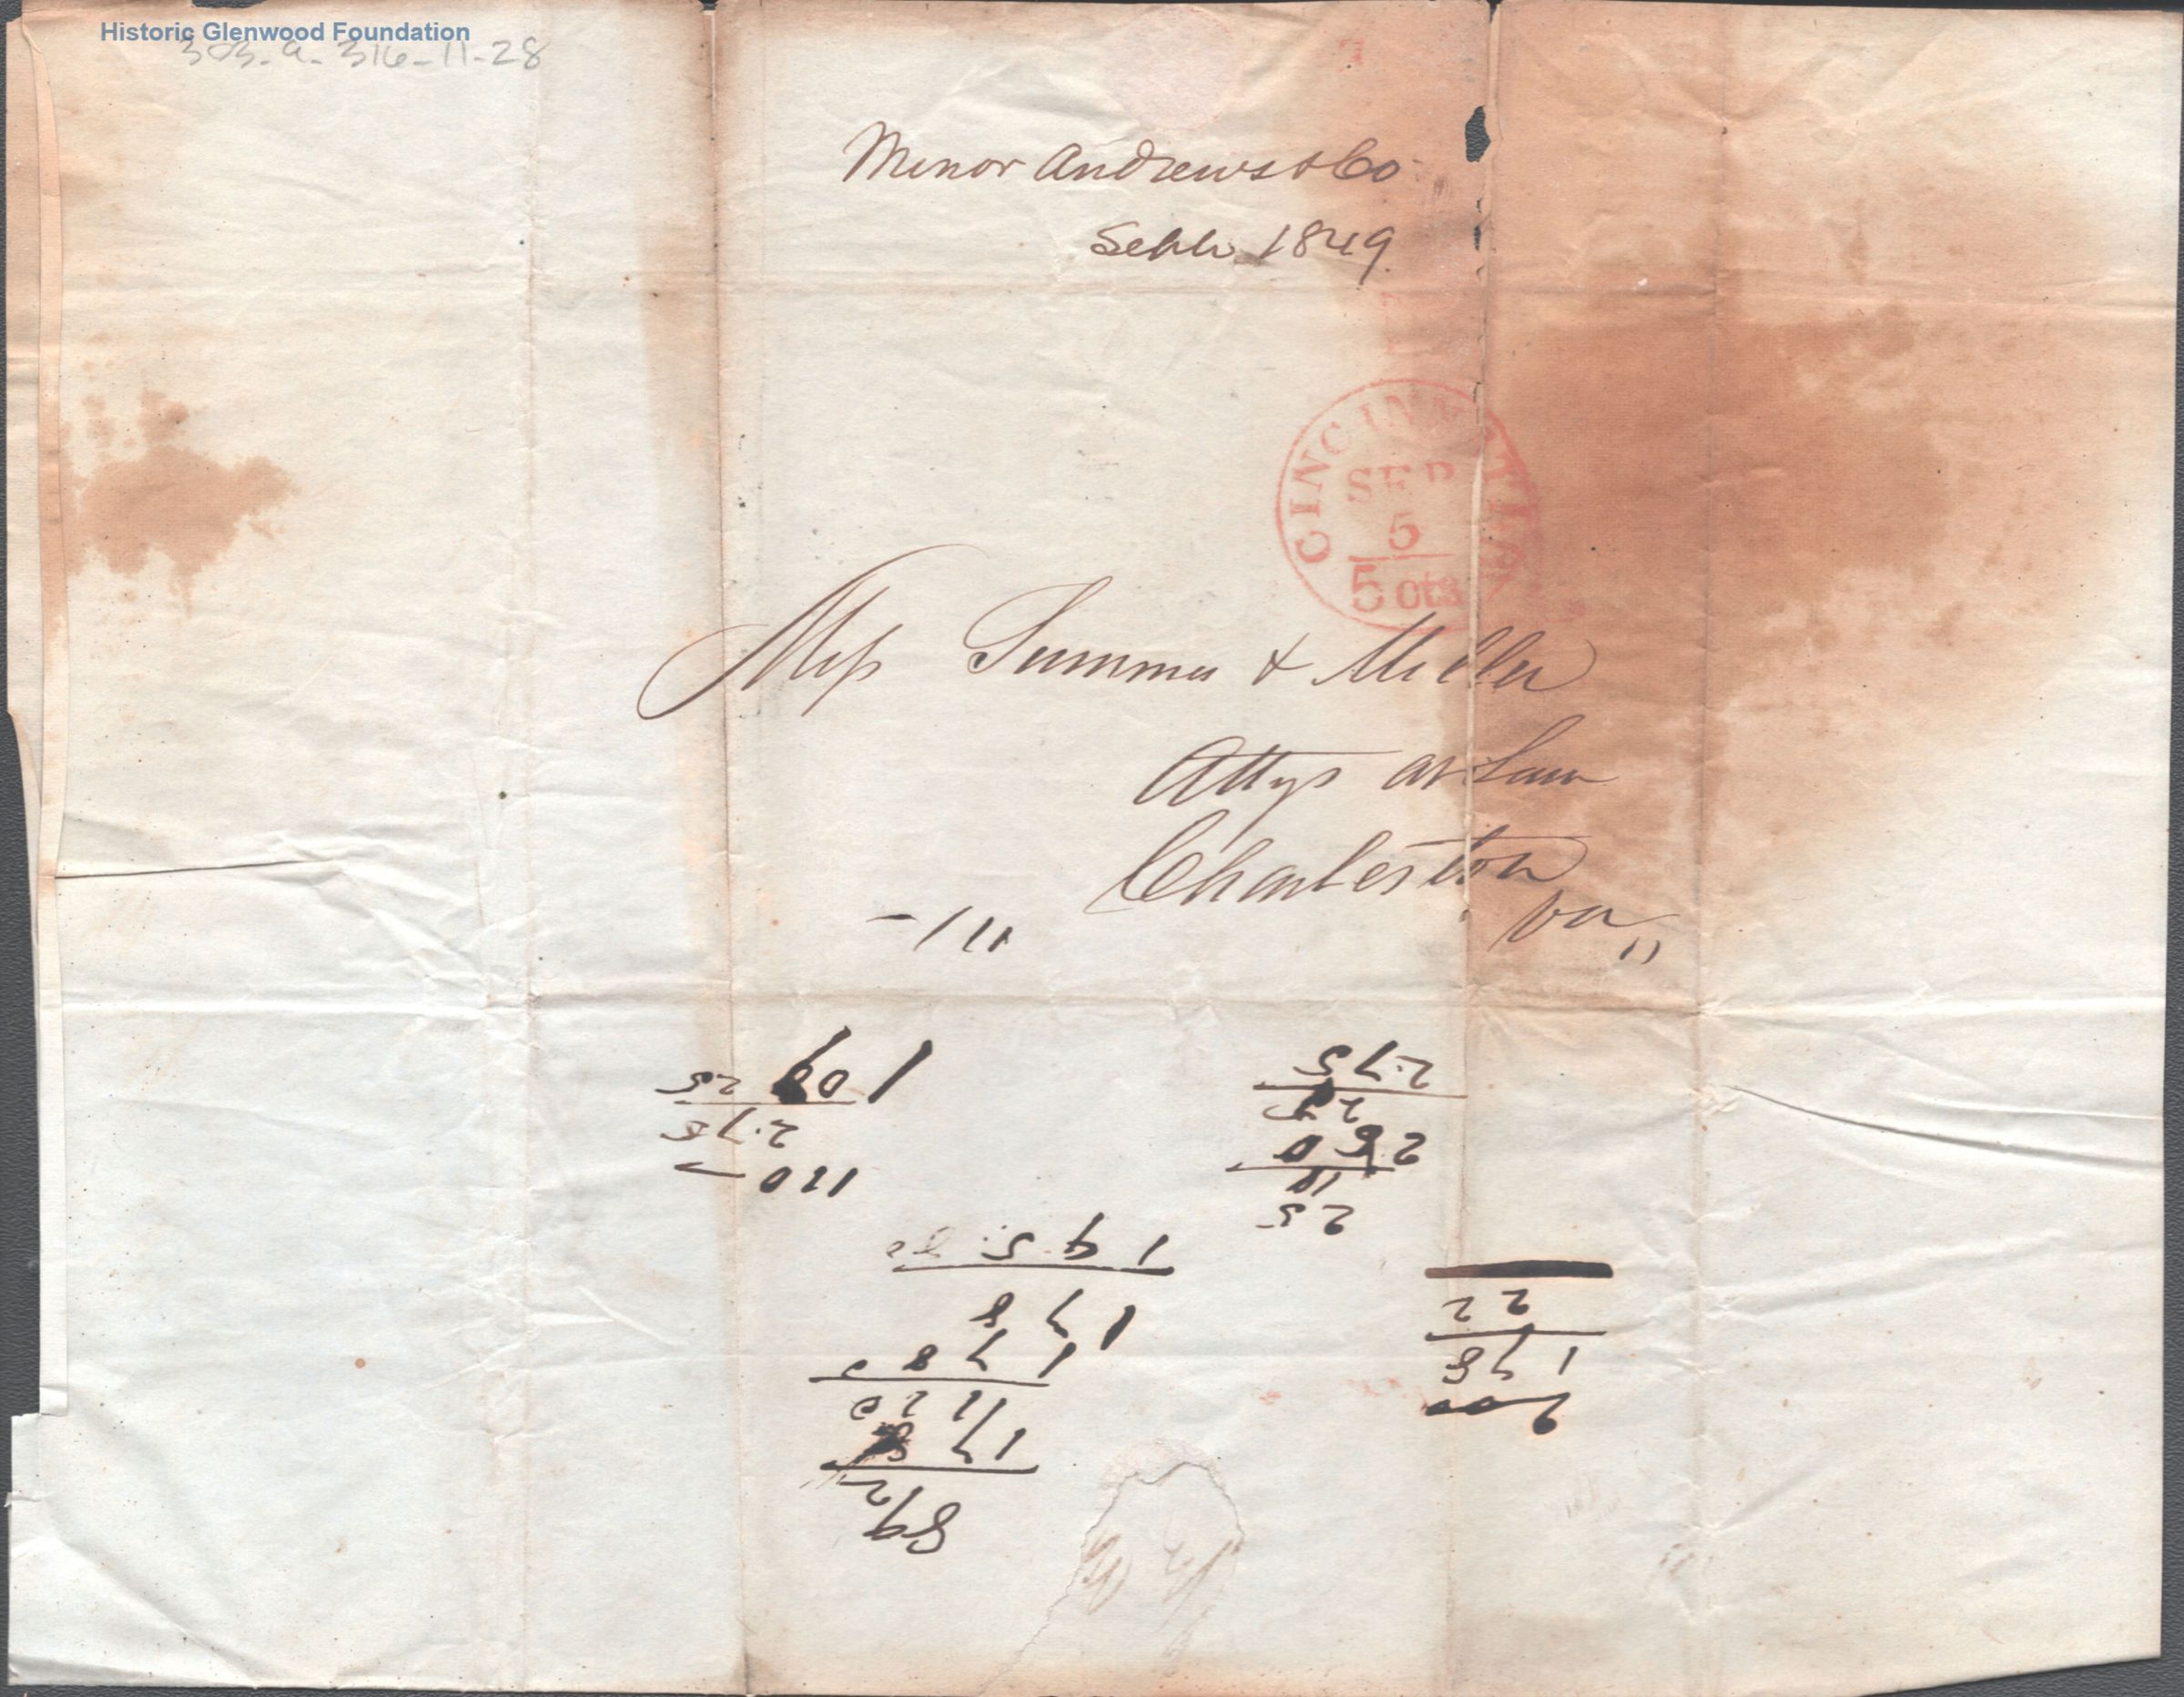 Historic Glenwood Foundation
303-9-316-11-28
Minor Andrews & Co
Septr 1849
CINCINNATI
SEP
5
5 cts
Mess Summers & Miller
Attys at Law
Charleston
Va
25
2.75
110
2.75
25
250
10
25
178
178
1120
22
178
200
89